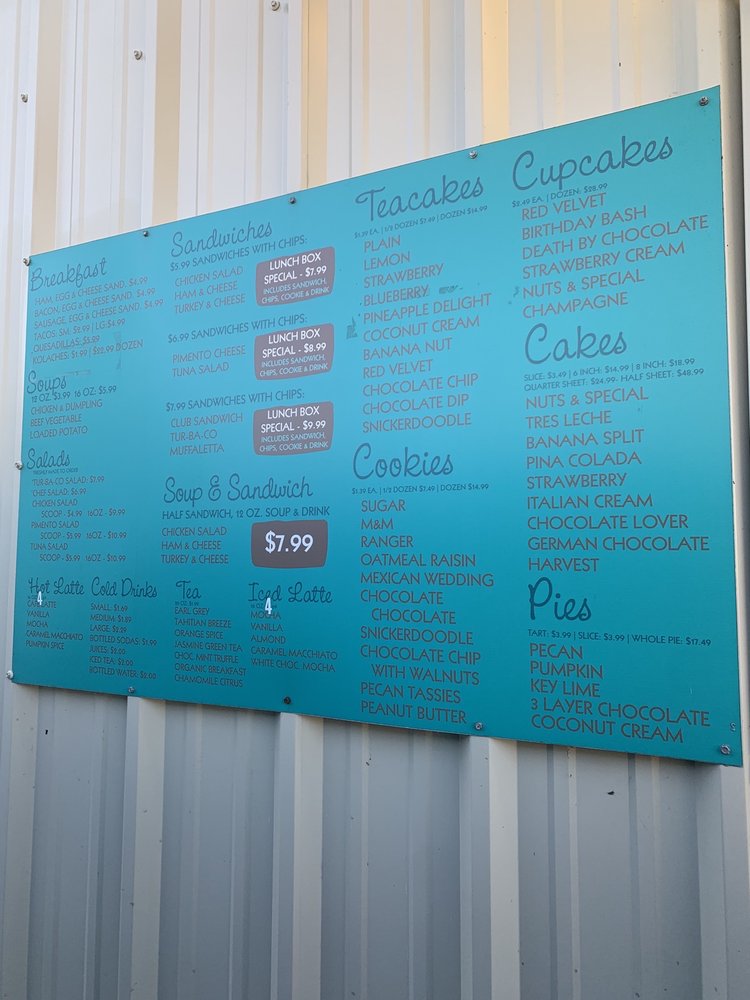 Breakfast
HAM, EGG & CHEESE SAND. $4.99
BACON, EGG & CHEESE SAND. $4.99
SAUSAGE, EGG & CHEESE SAND. $4.99
TACOS: SM. $2.99 | LG $4.99
QUESADILLAS: $5.99
KOLACHES: $1.99 | $22.99 DOZEN
Soups
12 OZ. $3.99 16 OZ: $5.99
CHICKEN & DUMPLING
BEEF VEGETABLE
LOADED POTATO
Salads
FRESHLY MADE TO ORDER
TUR-BA-CO SALAD: $7.99
CHEF SALAD: $6.99
CHICKEN SALAD
SCOOP - $4.99 16OZ - $9.99
PIMENTO SALAD
SCOOP - $5.99 16OZ - $10.99
TUNA SALAD
SCOOP - $5.99 16OZ - $10.99
Hot Latte
4
VANILLA
MOCHA
CARAMEL MACCHIATO
PUMPKIN SPICE
Cold Drinks
SMALL: $1.69
MEDIUM: $1.89
LARGE: $2.29
BOTTLED SODAS: $1.99
JUICES: $2.00
ICED TEA: $2.00
BOTTLED WATER: $2.00
Sandwiches
$5.99 SANDWICHES WITH CHIPS:
CHICKEN SALAD
HAM & CHEESE
TURKEY & CHEESE
LUNCH BOX
SPECIAL - $7.99
INCLUDES SANDWICH,
CHIPS, COOKIE & DRINK
$6.99 SANDWICHES WITH CHIPS:
PIMENTO CHEESE
TUNA SALAD
LUNCH BOX
SPECIAL - $8.99
INCLUDES SANDWICH,
CHIPS, COOKIE & DRINK
$7.99 SANDWICHES WITH CHIPS:
CLUB SANDWICH
TUR-BA-CO
MUFFALETTA
LUNCH BOX
SPECIAL - $9.99
INCLUDES SANDWICH,
CHIPS, COOKIE & DRINK
Soup & Sandwich
HALF SANDWICH, 12 OZ. SOUP & DRINK
CHICKEN SALAD
HAM & CHEESE
TURKEY & CHEESE
$7.99
Tea
EARL GREY
TAHITIAN BREEZE
ORANGE SPICE
JASMINE GREEN TEA
CHOC. MINT TRUFFLE
ORGANIC BREAKFAST
CHAMOMILE CITRUS
Iced Latte
4
MOCHA
VANILLA
ALMOND
CARAMEL MACCHIATO
WHITE CHOC. MOCHA
Teacakes
$1.39 EA. | 1/2 DOZEN $7.49 | DOZEN $14.99
PLAIN
LEMON
STRAWBERRY
BLUEBERRY
PINEAPPLE DELIGHT
COCONUT CREAM
BANANA NUT
RED VELVET
CHOCOLATE CHIP
CHOCOLATE DIP
SNICKERDOODLE
Cookies
$1.39 EA. | 1/2 DOZEN $7.49 | DOZEN $14.99
SUGAR
M&M
RANGER
OATMEAL RAISIN
MEXICAN WEDDING
CHOCOLATE
CHOCOLATE
SNICKERDOODLE
CHOCOLATE CHIP
WITH WALNUTS
PECAN TASSIES
PEANUT BUTTER
Cupcakes
$2.49 EA. | DOZEN: $28.99
RED VELVET
BIRTHDAY BASH
DEATH BY CHOCOLATE
STRAWBERRY CREAM
NUTS & SPECIAL
CHAMPAGNE
Cakes
SLICE: $3.49 | 6 INCH: $14.99 | 8 INCH: $18.99
QUARTER SHEET: $24.99. HALF SHEET: $48.99
NUTS & SPECIAL
TRES LECHE
BANANA SPLIT
PINA COLADA
STRAWBERRY
ITALIAN CREAM
CHOCOLATE LOVER
GERMAN CHOCOLATE
HARVEST
Pies
TART: $3.99 | SLICE: $3.99 | WHOLE PIE: $17.49
PECAN
PUMPKIN
KEY LIME
3 LAYER CHOCOLATE
COCONUT CREAM